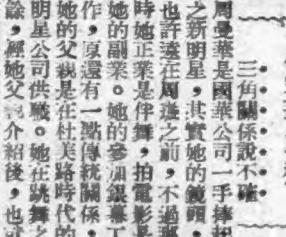 三角關係說不確
周曼華是國華公司一手捧起
之新明星，其實她的鏡頭，
也許遠在周璇之前，不過那
時她正業是伴舞，拍電影是
她的副業。她的參加銀幕工
作，原還有一點傳統關係，
她的父親是在杜美路時代的
明星公司供職。她在跳舞之
餘，經她父親介紹後，也就